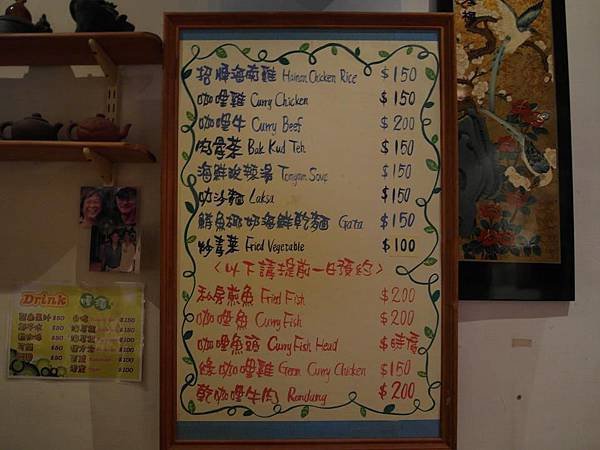 招牌海南雞 Hainan Chicken Rice $150
咖哩雞 Curry Chicken $150
咖哩牛 Curry Beef $200
肉骨茶 Bak Kud Teh $150
海鮮酸辣湯 Tomyam Soup $150
叻沙麵 Laksa $150
鯛魚椰奶海鮮乾麵 Gata $150
炒青菜 Fried Vegetable $100
〈以下請提前一日預約〉
私房煎魚 Fried Fish $200
咖哩魚 Curry Fish $200
咖哩魚頭 Curry Fish Head $時價
綠咖哩雞 Green Curry Chicken $150
乾咖哩牛肉 Randung $200
Drink